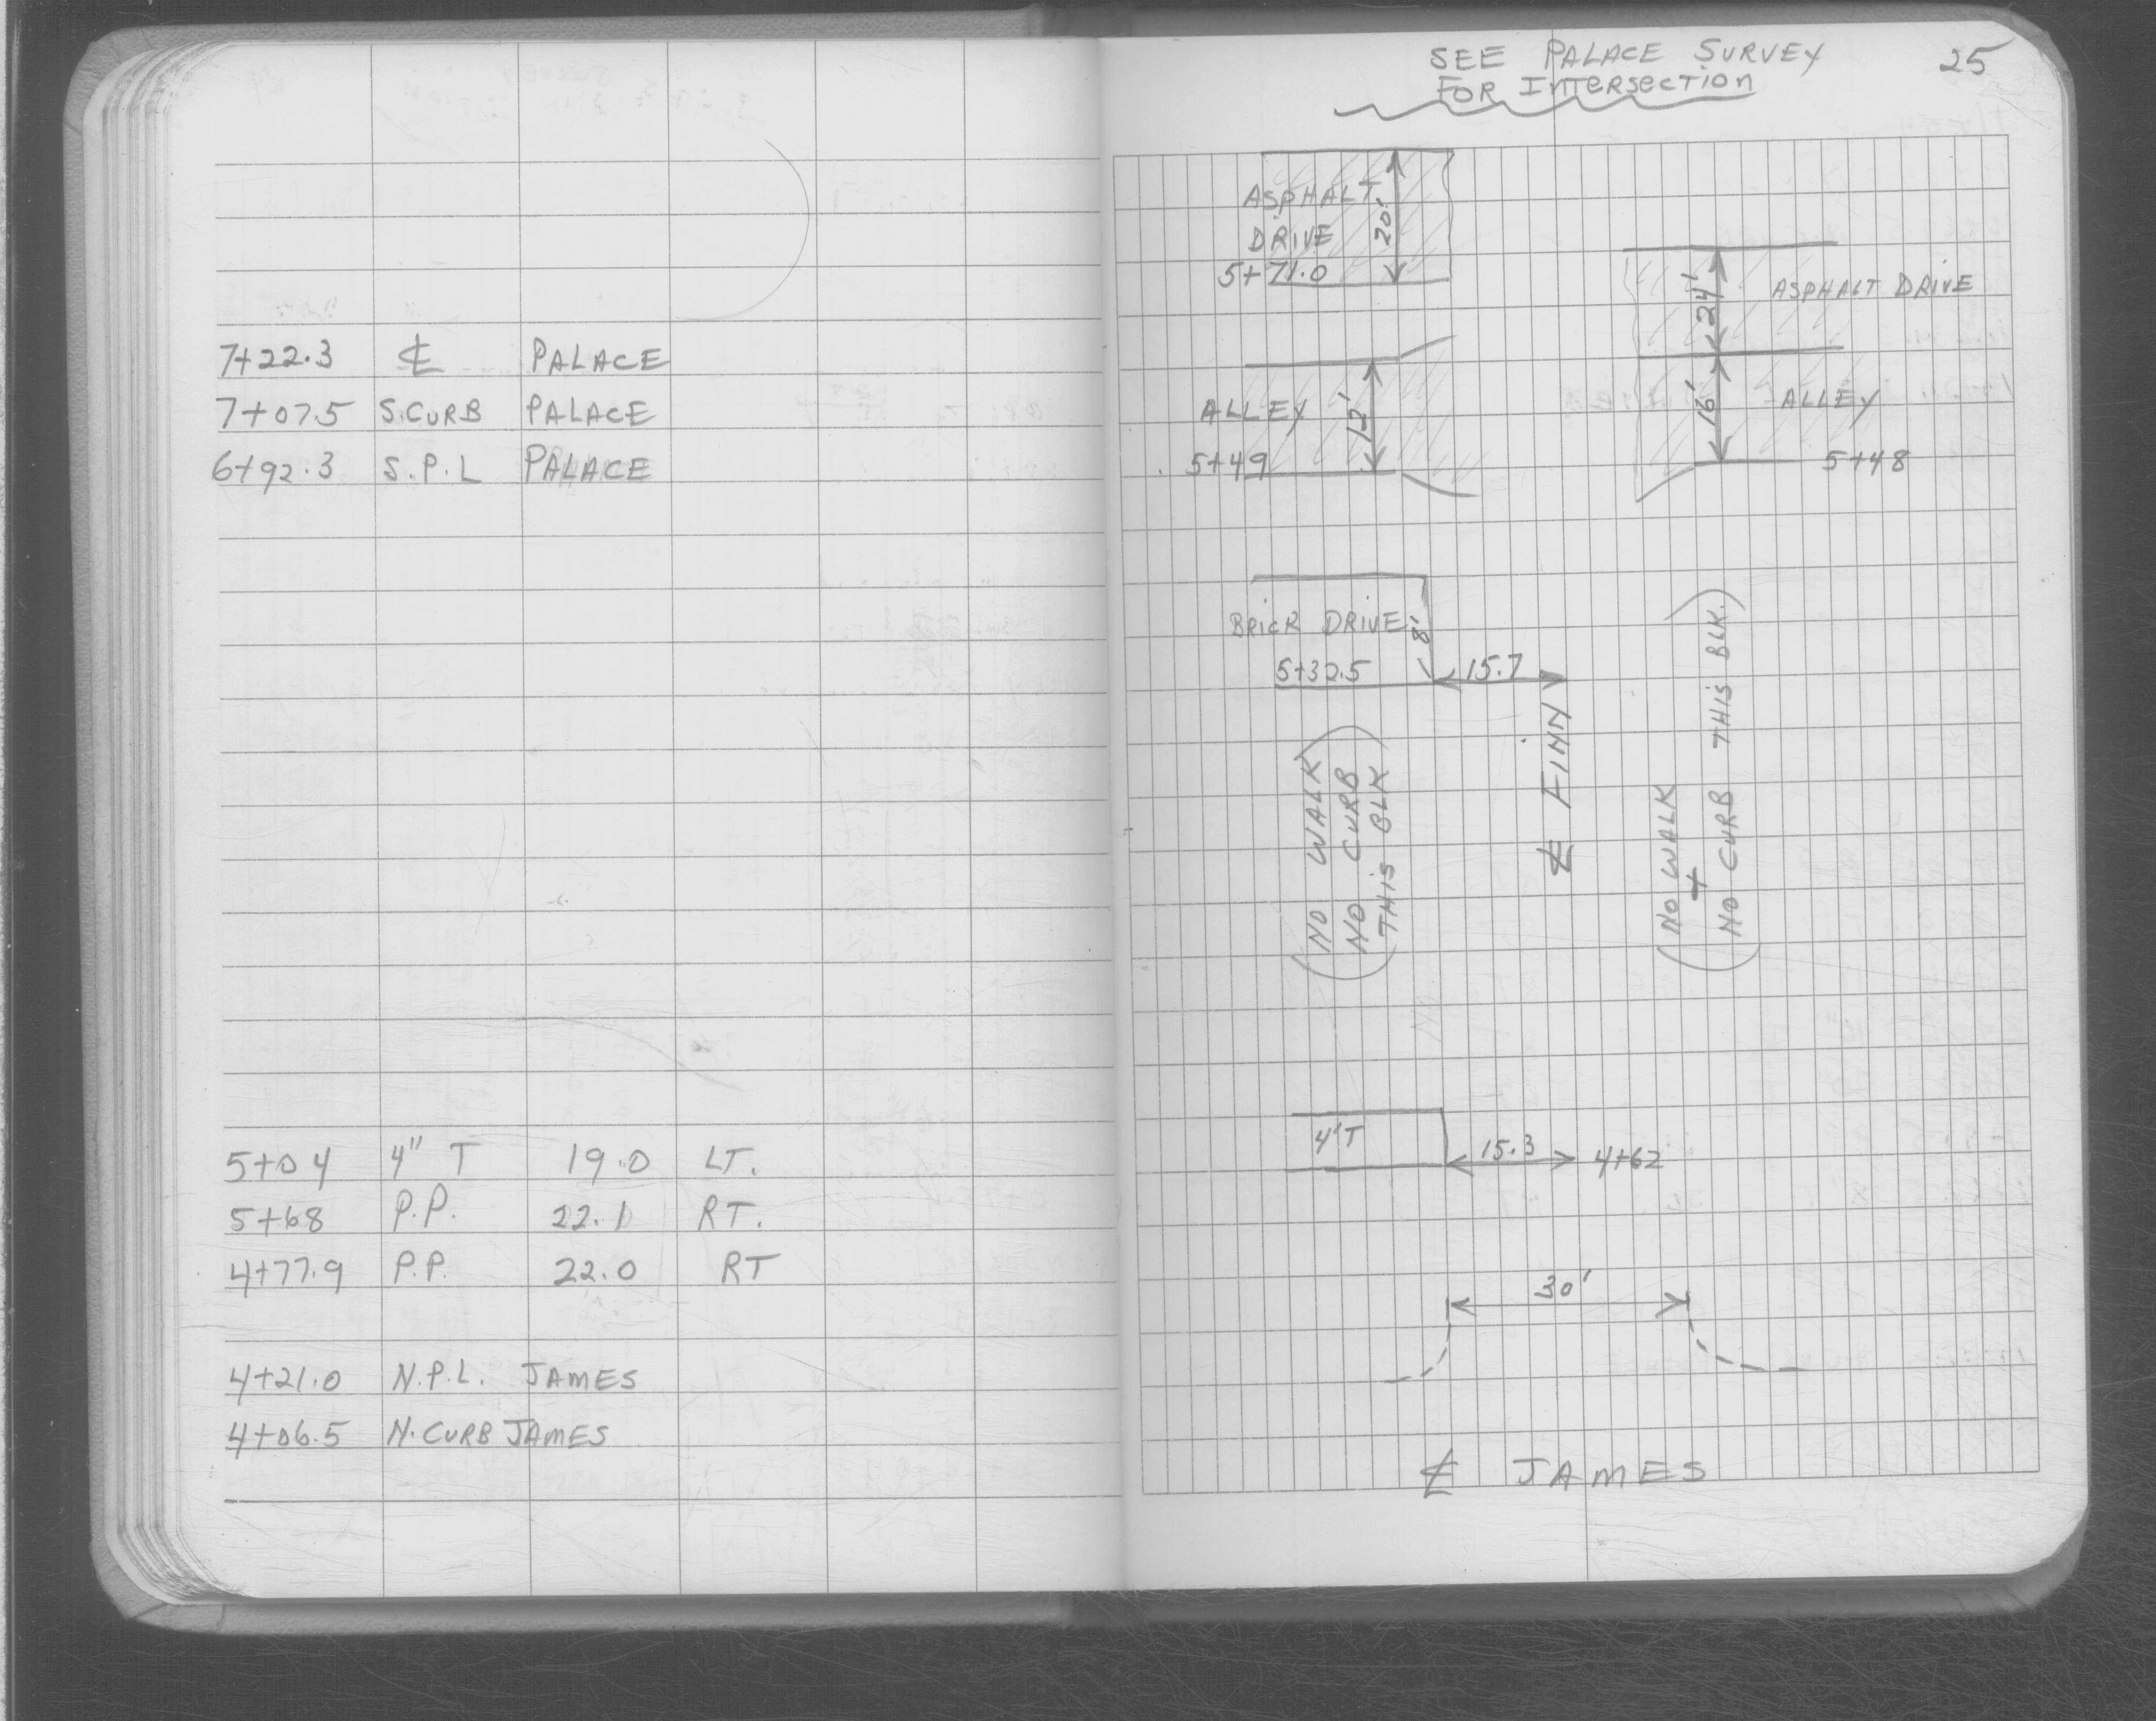 7+22.3 ℄ PALACE
7+07.5 S.CURB PALACE
6+92.3 S.P.L PALACE
5+04 4" T 19.0 LT.
5+68 P.P. 22.1 RT.
4+77.9 P.P. 22.0 RT
4+21.0 N.P.L. JAMES
4+06.5 N.CURB JAMES
SEE PALACE SURVEY
FOR INTERSECTION
25
ASPHALT
DRIVE
5+71.0
20'
24'
ASPHALT DRIVE
ALLEY
12'
5+49
16'
ALLEY
5+48
BRICK DRIVE
8'
5+32.5
15.7
℄ FINN
(NO WALK)
NO CURB
THIS BLK)
(NO WALK
+
NO CURB THIS BLK.)
4'T
15.3
4+62
30'
℄ JAMES